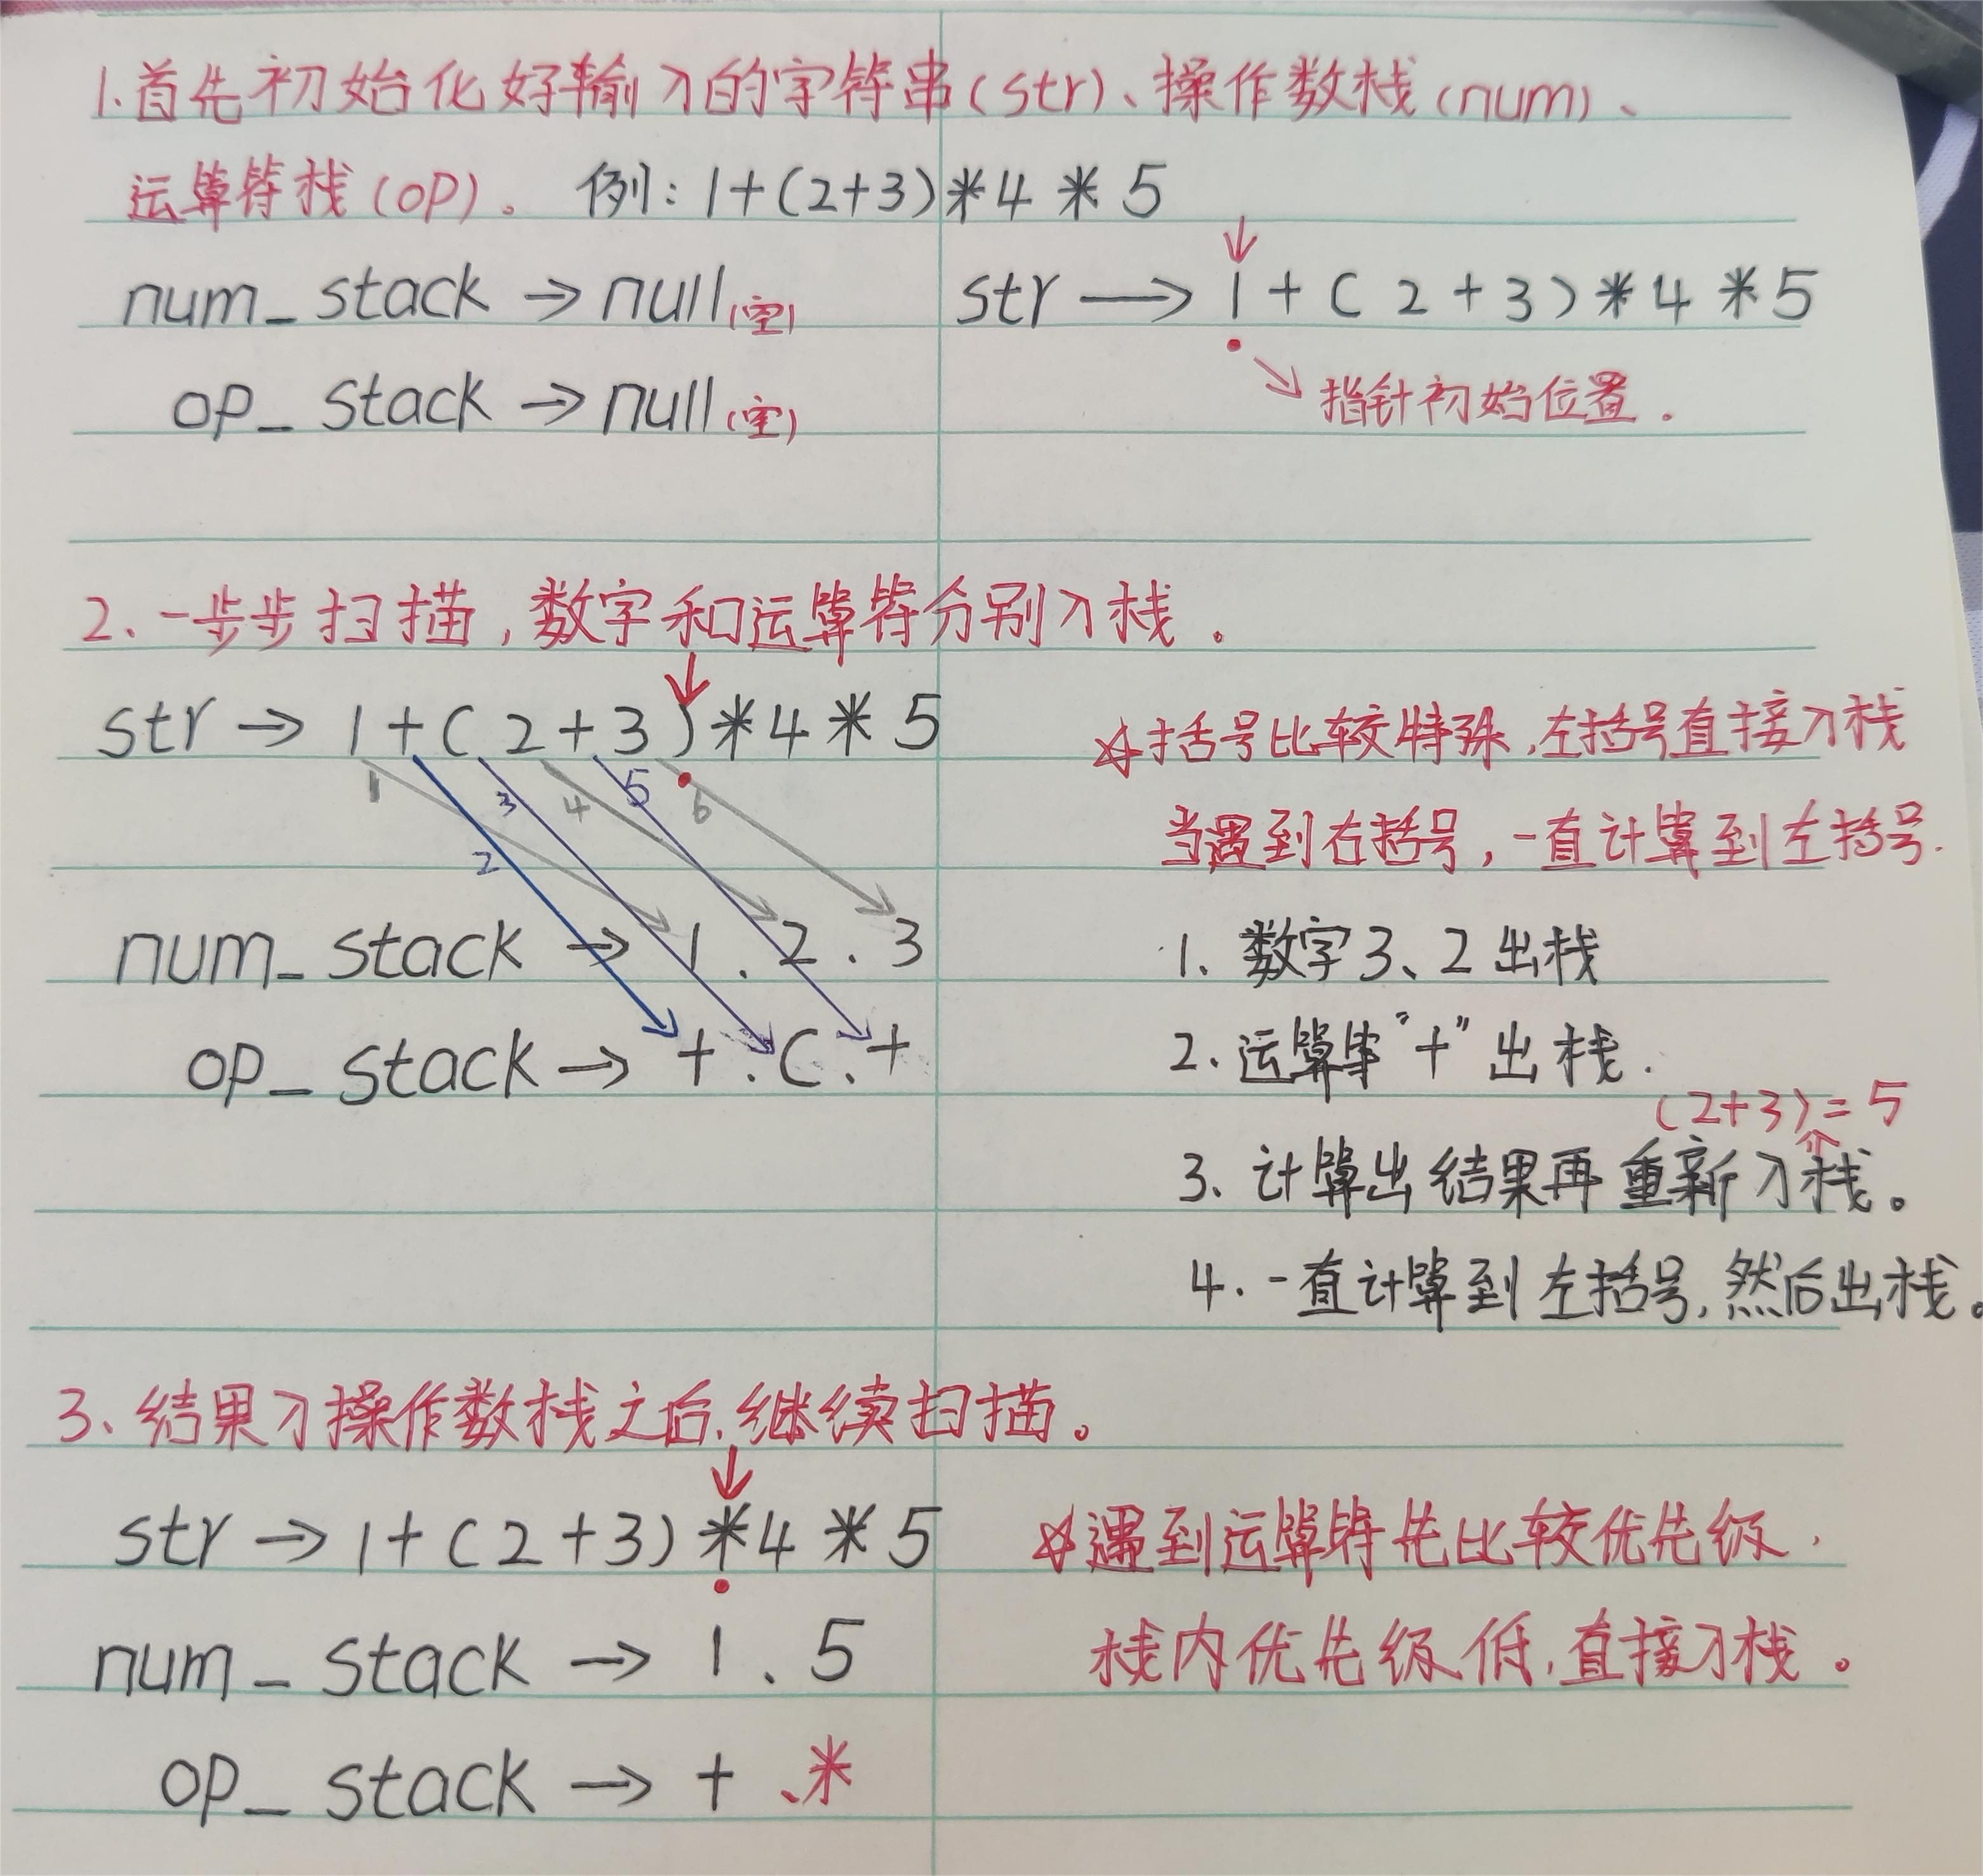 1.首先初始化好输入的字符串(str)、操作数栈(num)、
运算符栈(op)。 例:1+(2+3)*4*5
num_stack→null(空)
op_stack→null(空)
str→1+(2+3)*4*5
指针初始位置.
2、一步步扫描,数字和运算符分别入栈.
str→1+(2+3)*4*5
1 2 3 4 5 6
num_stack→1.2.3
op_stack→+.(.+
☆括号比较特殊,左括号直接入栈
当遇到右括号,一直计算到左括号.
1.数字3、2出栈
2.运算符"+"出栈.
(2+3)=5
3、计算出结果再重新入栈。
4.一直计算到左括号,然后出栈。
3、结果入操作数栈之后,继续扫描。
str→1+(2+3)*4*5
num_stack→1、5
op_stack→+、*
☆遇到运算符先比较优先级,
栈内优先级低,直接入栈。